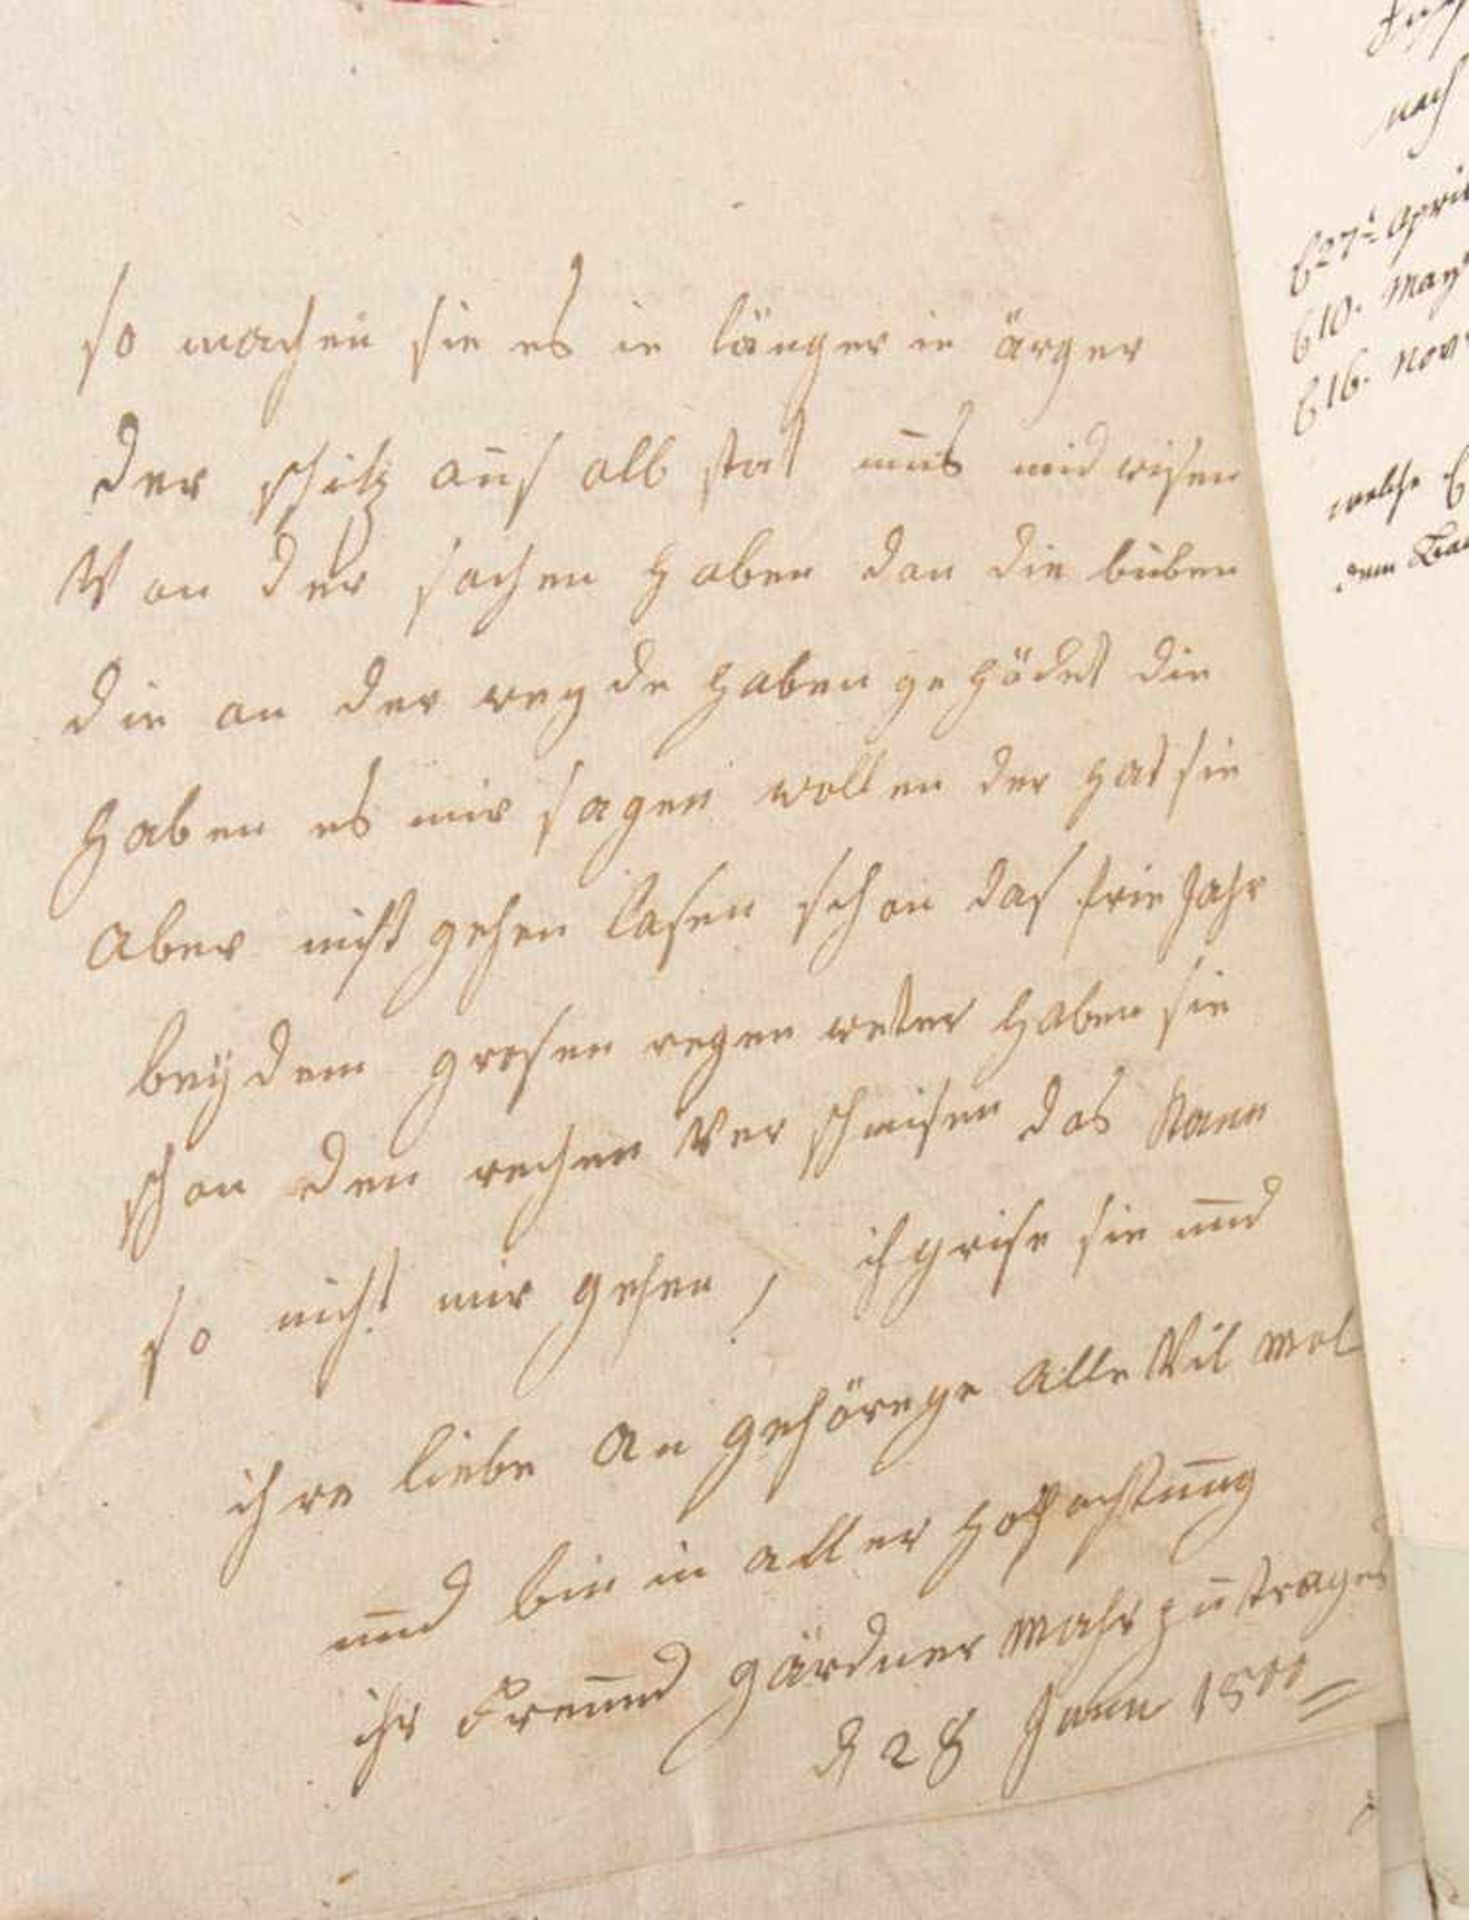 so machen sie es ie länger ie ärger
der schitz aus alb stat mus mid wisen
Von der sachen haben dan die buben
die an der weyde haben gehödet die
haben es mir sagen wollen der hat sie
aber nicht gehen lasen schon das frie Jahr
beÿ dem grosen regen weter haben sie
schon den rechen Ver schmisen das Kann
so nicht mir gehen, ich grise sie und
ihre liebe an gehörege alle Vil mol
und bin in aller hochachtung
ihr Freund gärdner Mahr zu
d 28 Juni
nach
27 April
10. May
16. Nov
welche
dem